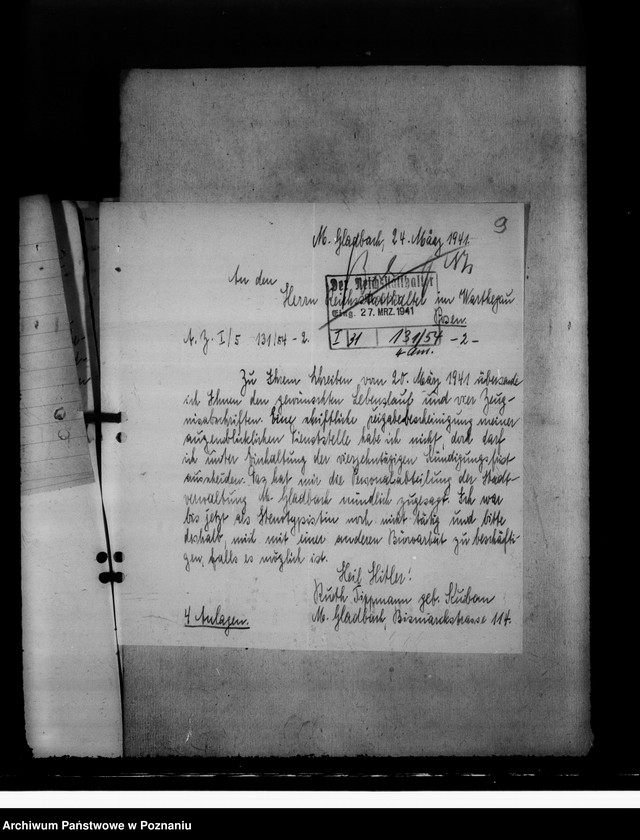 9
M. Gladbach, 24. März 1941.
An den
Der Reichsstatthalter
Herrn Reichsstatthalter im Warthegau
Eing. 27. MRZ. 1941
Posen.
A. Z. I/5 131/54 - 2.
I 31 131/54 - 2 -
4 Anl.
Zu Ihrem Schreiben vom 20. März 1941 übersende
ich Ihnen den gewünschten Lebenslauf und vier Zeug-
nisabschriften. Eine schriftliche Freigabebescheinigung meiner
augenblicklichen Dienststelle habe ich nicht, doch darf
ich unter Einhaltung der vierzehntägigen Kündigungsfrist
ausscheiden. Das hat mir die Personalabteilung der Stadt-
verwaltung M. Gladbach mündlich zugesagt. Ich war
bis jetzt als Stenotypistin noch nicht tätig und bitte
deshalb, mich mit einer anderen Büroarbeit zu beschäfti-
gen, falls es möglich ist.
Heil Hitler!
Ruth Tippmann geb.
4 Anlagen.
M. Gladbach, Bismarckstrasse 114.
Archiwum Państwowe w Poznaniu